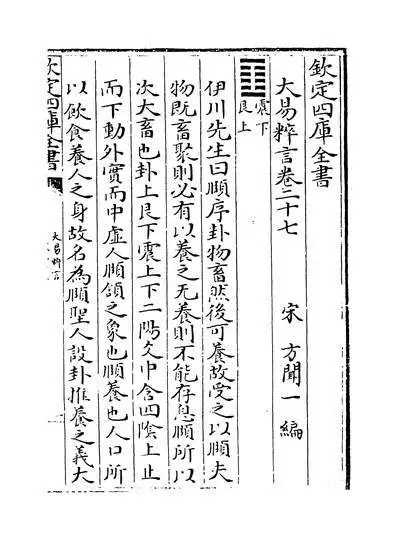 欽定四庫全書
大易粹言卷二十七
宋 方聞一 編
震下
艮上
伊川先生曰頤序卦物畜然後可養故受之以頤夫
物既畜聚則必有以養之无養則不能存息頤所以
次大畜也卦上艮下震上下二陽爻中含四陰上止
而下動外實而中虛人頤頷之象也頤養也人口所
以飲食養人之身故名為頤聖人設卦推養之義大
欽定四庫全書
大易粹言